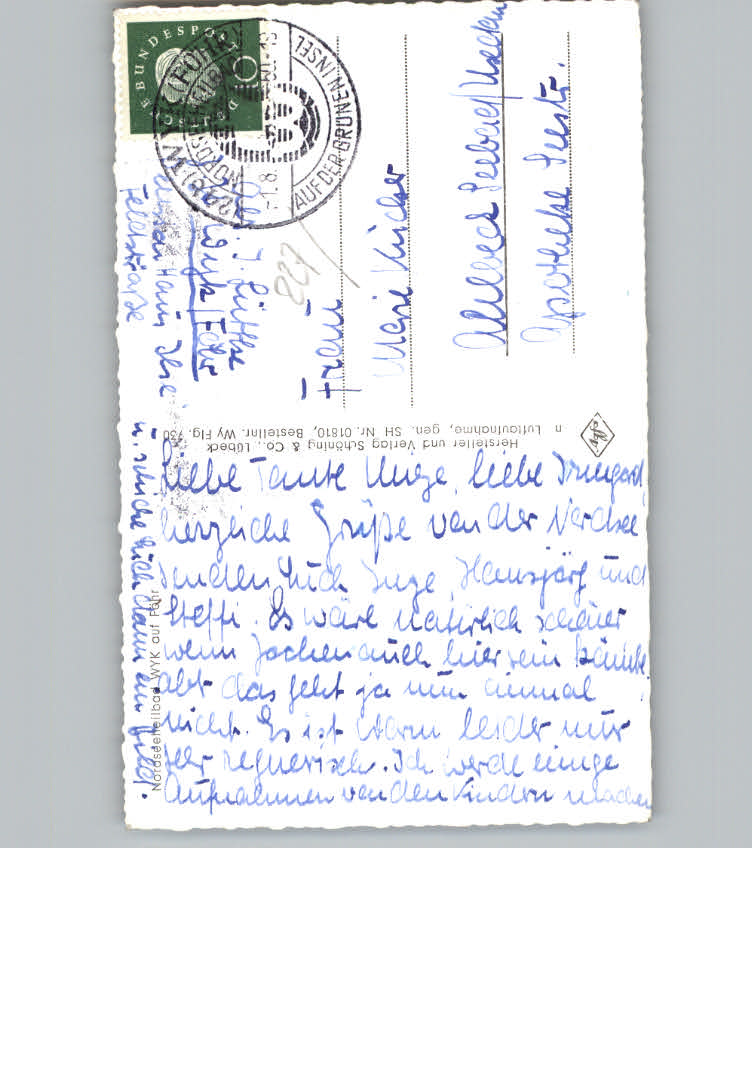 DEUTSCHE BUNDESPOST
10
WYK (FÖHR)
NORDSEEHEILBAD
AUF DER GRÜNEN INSEL
-1.8.
227
Wyk/Föhr
Haus Ilse
Feldstraße
Frau
Marie
Ahlbeck Seebad/Usedom
Apotheke Seestr.
Hersteller und Verlag Schöning & Co., Lübeck
n Luftaufnahme, gen. SH Nr. 01810, Bestellnr. Wy Flg. 730
Nordseeheilbad WYK auf Föhr
Liebe Tante Miege, liebe Irmgard,
herzliche Grüße von der Nordsee
senden Euch Inge, Hansjörg und
Steffi. Es wäre natürlich schöner
wenn Jochen auch hier sein könnte.
aber das geht ja nun einmal
nicht. Es ist warm leider nur
sehr regnerisch. Ich werde einige
Aufnahmen von den Kindern machen
u. schicke Euch dann ein Bild.